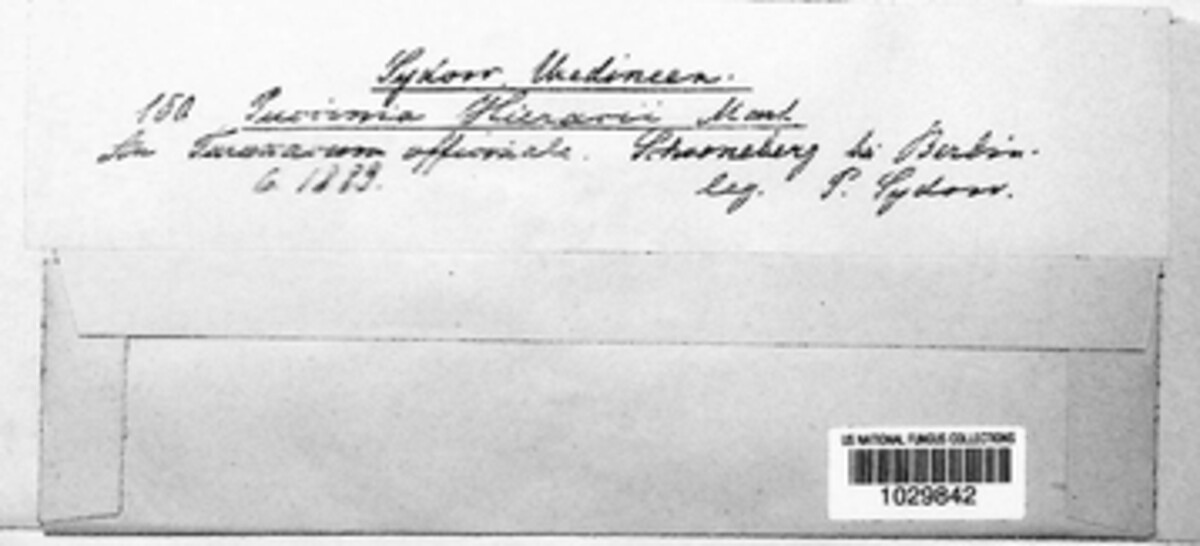 Sydow, Uredineen.
150 Puccinia Hieracii Mart.
An Taraxacum officinale. Schoneberg bei Berlin.
6. 1889. leg. P. Sydow.
US NATIONAL FUNGUS COLLECTIONS
1029842